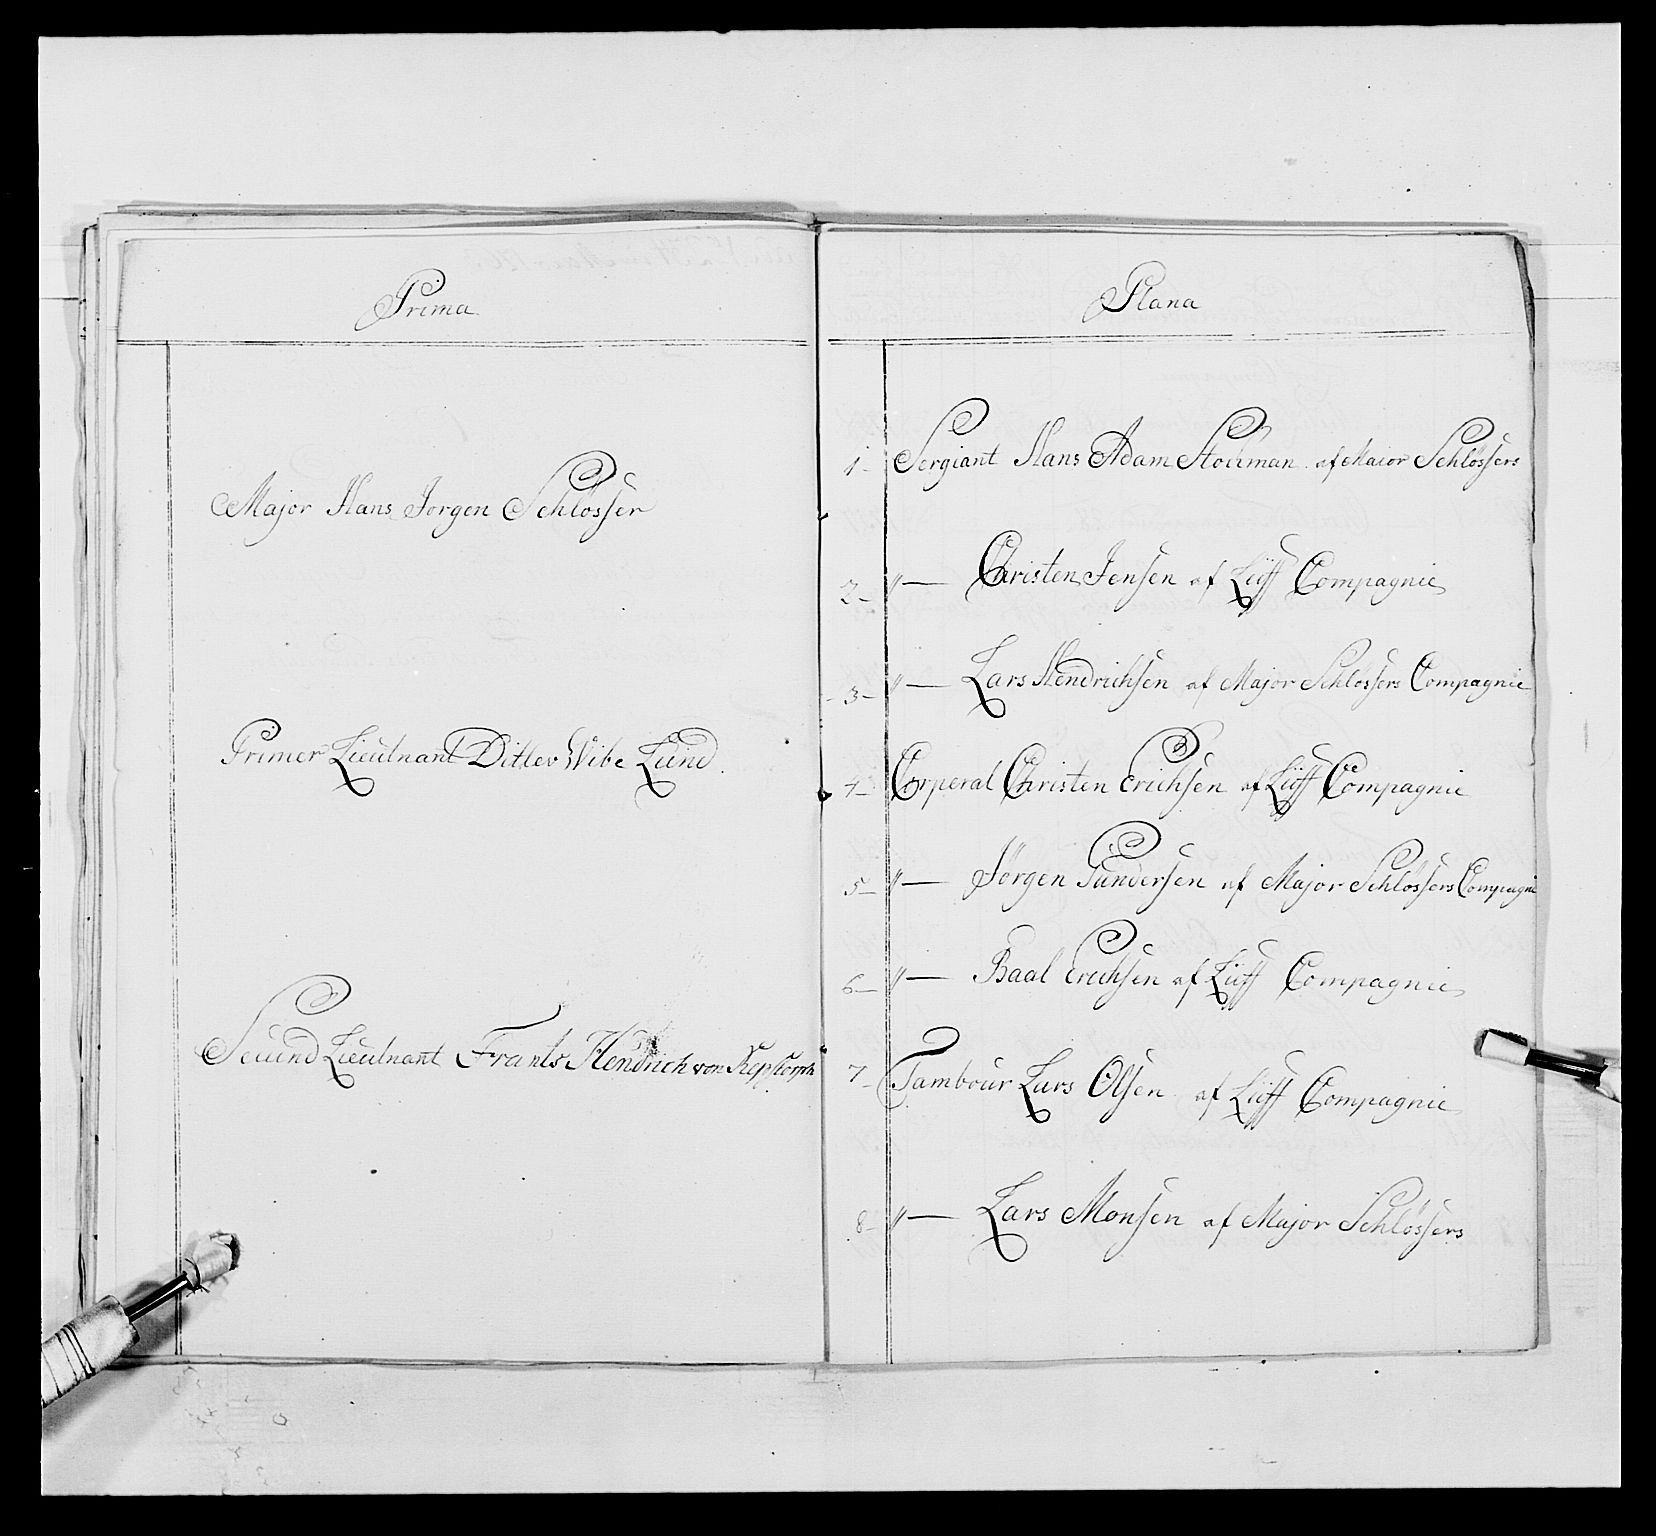 Prima
Major Hans Jørgen Schløsser
Primer Lieutnant Ditlev Wibe Lund
Secund Lieutnant Frants Hendrich von
Plana
1- Sergiant Hans Adam Stochman af Maior Schløssers
2- "— Christen Jensen af Liiff Compagnie
3- "— Lars Hendrichsen af Major Schløssers Compagnie
4- Corperal Christen Erichsen af Liiff Compagnie
5- "— Jørgen Gundersen af Major Schløssers Compagnie
6- "— Baal Erichsen af Liiff Compagnie
7- Tambour Lars Olsen af Liiff Compagnie
8- "— Lars Monsen af Major Schløssers